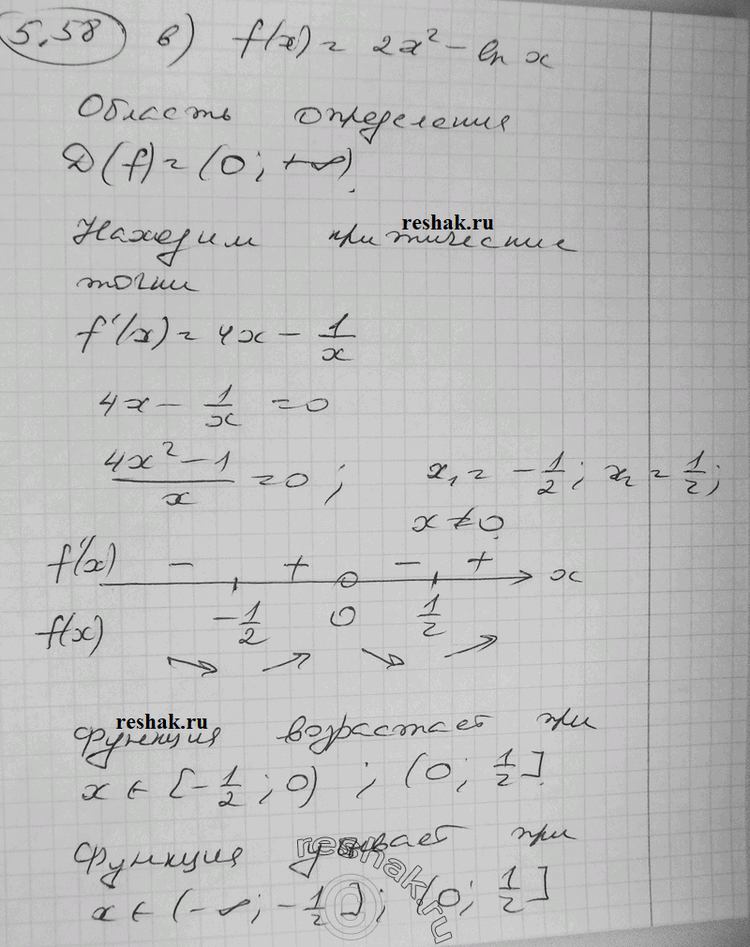 5.58 в) f(x) = 2x² - ln x
Область определения
D(f) = (0; +∞)
reshak.ru
Находим критические
точки
f'(x) = 4x - 1/x
4x - 1/x = 0
(4x² - 1)/x = 0; x₁ = -1/2; x₂ = 1/2;
x ≠ 0
f'(x) - + - + x
f(x) -1/2 0 1/2
reshak.ru
Функция возрастает при
x ∈ [-1/2; 0); (0; 1/2]
Функция убывает при
reshak.ru
x ∈ (-∞; -1/2]; (0; 1/2]